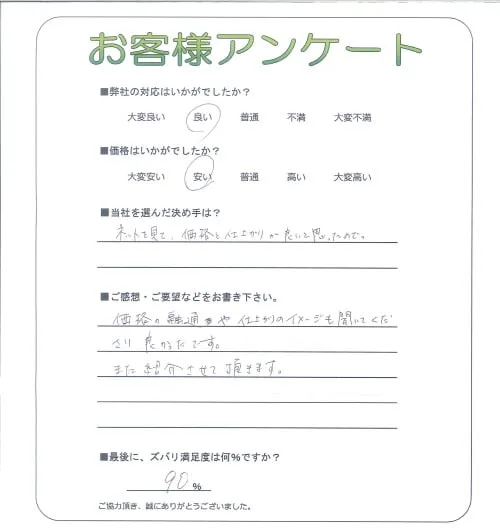 お客様アンケート
■弊社の対応はいかがでしたか？
大変良い 良い 普通 不満 大変不満
■価格はいかがでしたか？
大変安い 安い 普通 高い 大変高い
■当社を選んだ決め手は？
ネットを見て、価格と仕上がりが良いと思ったので。
■ご感想・ご要望などをお書き下さい。
価格の融通や仕上がりのイメージも聞いてくだ
さり良かったです。
また紹介させて頂きます。
■最後に、ズバリ満足度は何％ですか？
90 %
ご協力頂き、誠にありがとうございました。